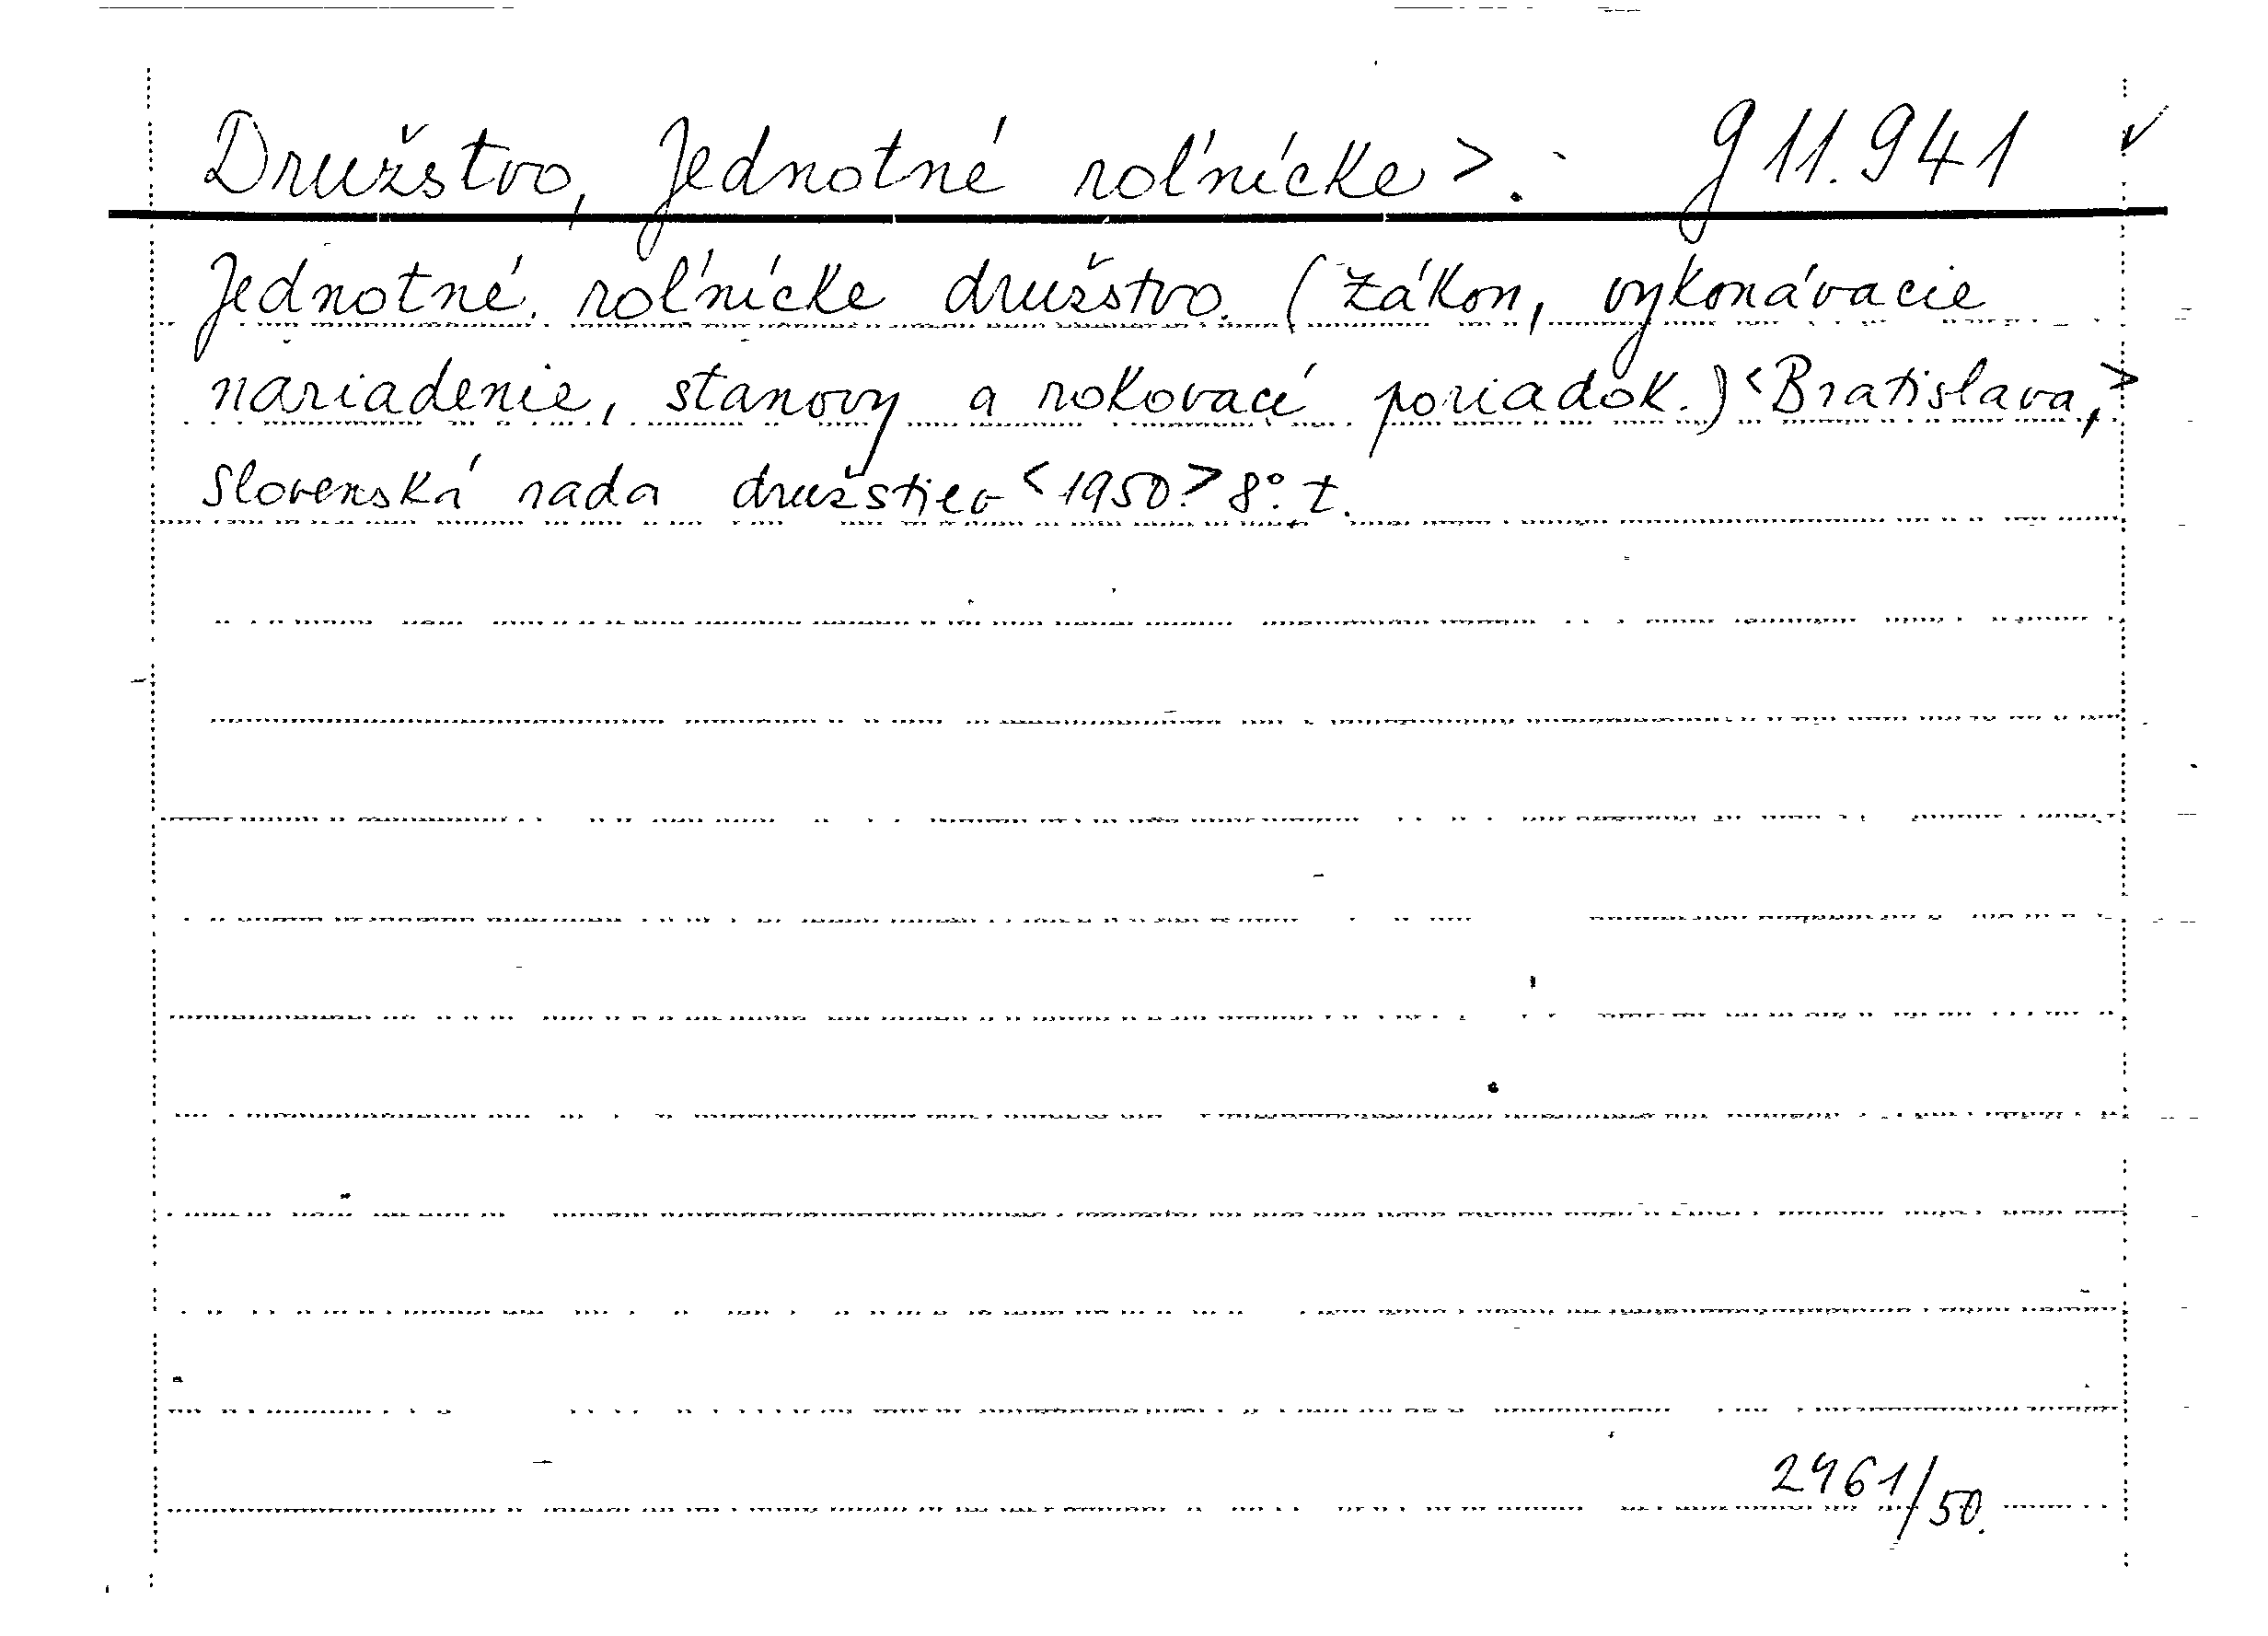 Družstvo, Jednotné roľnícke>. g 11.941 ✓
Jednotné roľnícke družstvo. (Zákon, vykonávacie
nariadenie, stanovy a rokovací poriadok.) <Bratislava,>
Slovenská rada družstiev <1950> 8°. t.
2461/50.